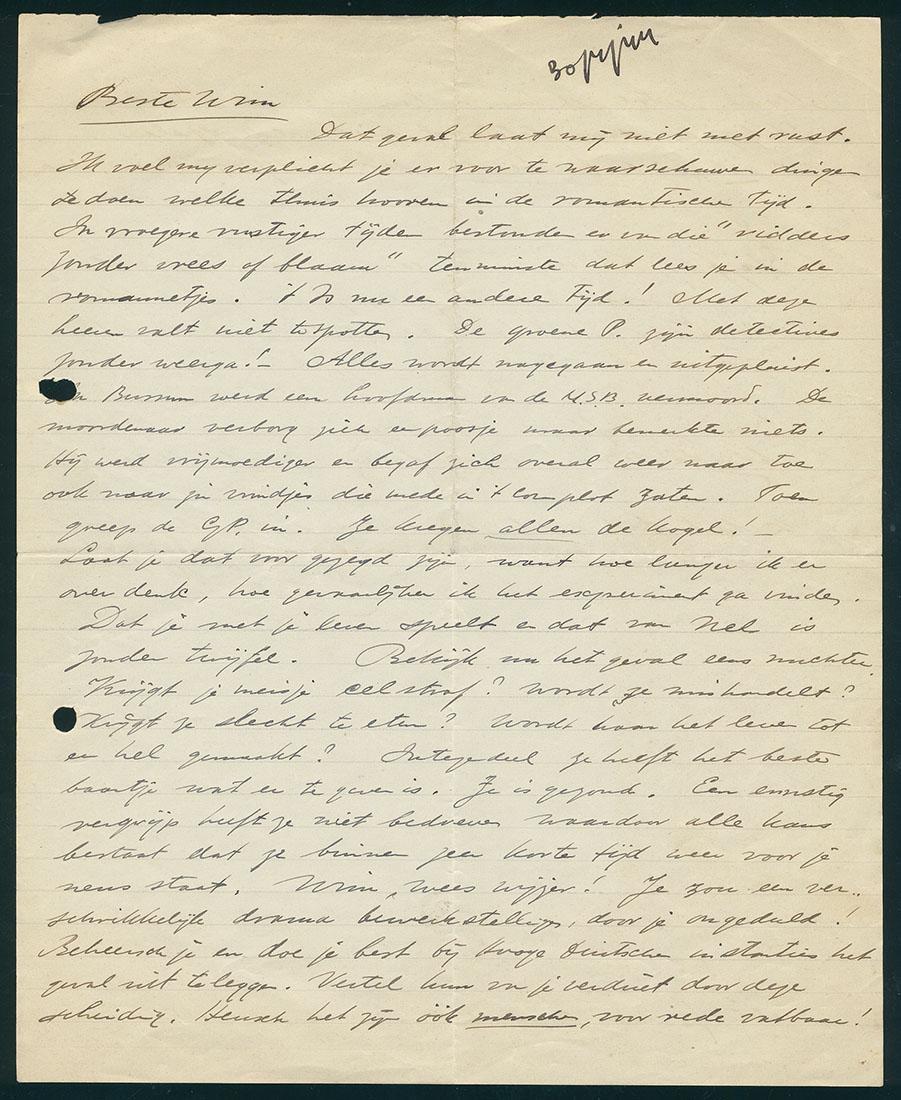 Beste Wim
Dat geval laat mij niet met rust.
Ik voel mij verplicht je er voor te waarschuwen dingen
te doen welke thuis hooren in de romantische tijd.
In vroegere rustiger tijden bestonden er van die "ridders
zonder vrees of blaam" tenminste dat lees je in de
romannetjes. 't Is nu een andere tijd! Met deze
heeren valt niet te spotten. De groene P. zijn detectives
zonder weerga!- Alles wordt nagegaan en uitgeplozen.
Bussum werd een hoofdman van de N.S.B. vermoord. De
moordenaar verborg zich een poosje maar bemerkte niets.
Hij werd vrijmoediger en begaf zich overal weer naar toe
ook naar zijn vrindjes die mede in 't complot zaten. Toen
greep de G.P. in. Ze kregen allen de kogel!-
Laat je dat voor gezegd zijn, want hoe langer ik er
over denk, hoe gevaarlijker ik het experiment ga vinden.
Dat je met je leven speelt en dat van Nel is
zonder twijfel. Bekijk nu het geval eens nuchter
Krijgt je meisje celstraf? Wordt ze mishandelt?
Krijgt ze slecht te eten? Wordt haar het leven tot
en hel gemaakt? Integendeel ze heeft het beste
baantje wat er te geven is. Ze is gezond. Een ernstig
vergrijp heeft ze niet bedreven waardoor alle kans
bestaat dat ze binnen zeer korte tijd weer voor je
neus staat. Wim, wees wijzer! Je zou een ver-
schrikkelijk drama bewerkstelligen, door je ongeduld!
Beheersch je en doe je best bij hooge Duitsche instanties het
geval uit te leggen. Vertel hun van je verdriet door deze
scheiding. Heusch het zijn óók menschen, voor rede vatbaar!